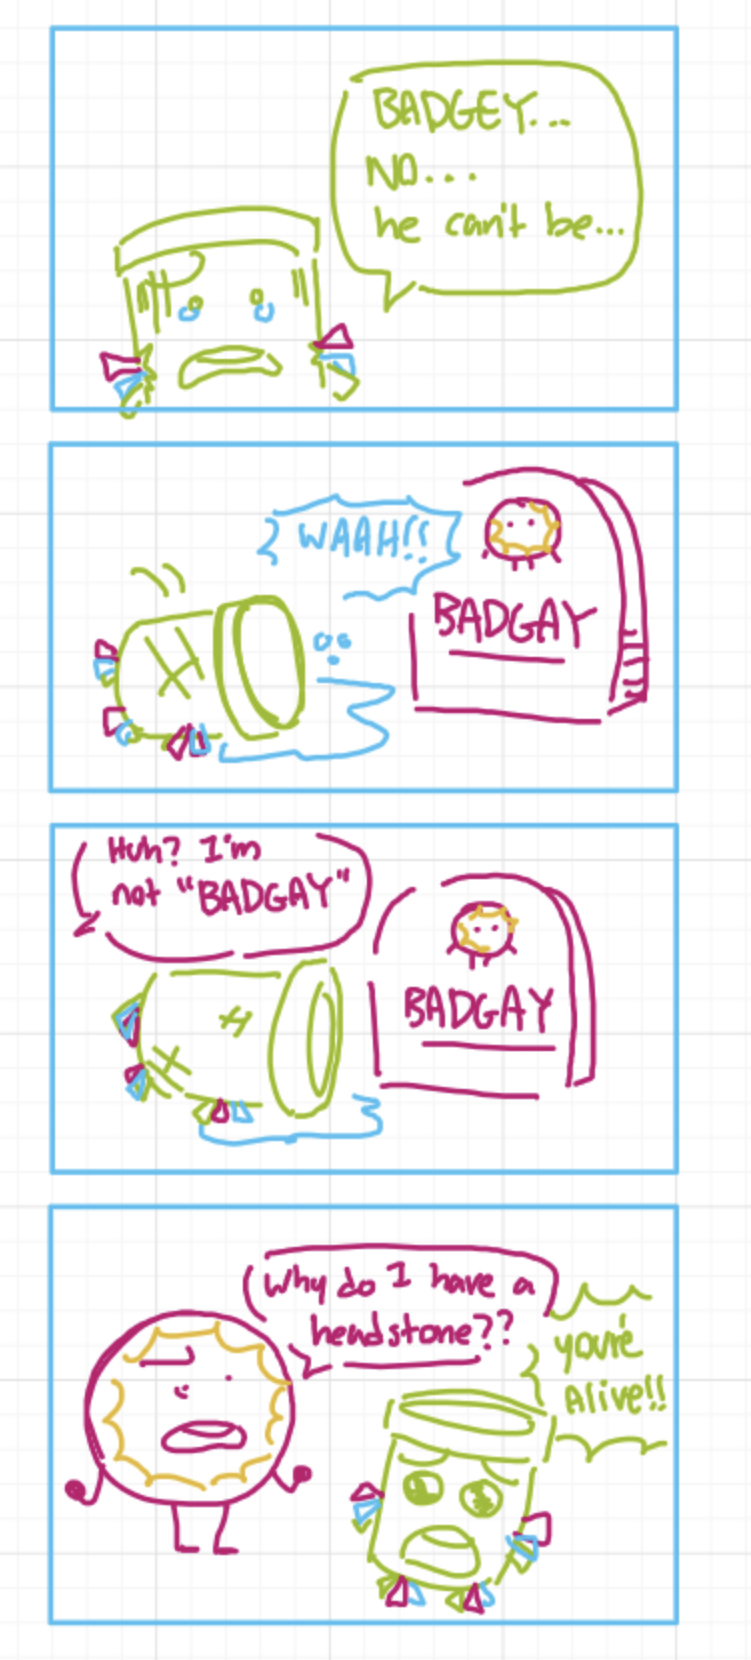 BADGEY...
NO...
he can't be...
WAAH!!
BADGAY
Huh? I'm
not "BADGAY"
BADGAY
Why do I have a
headstone??
you're
Alive!!